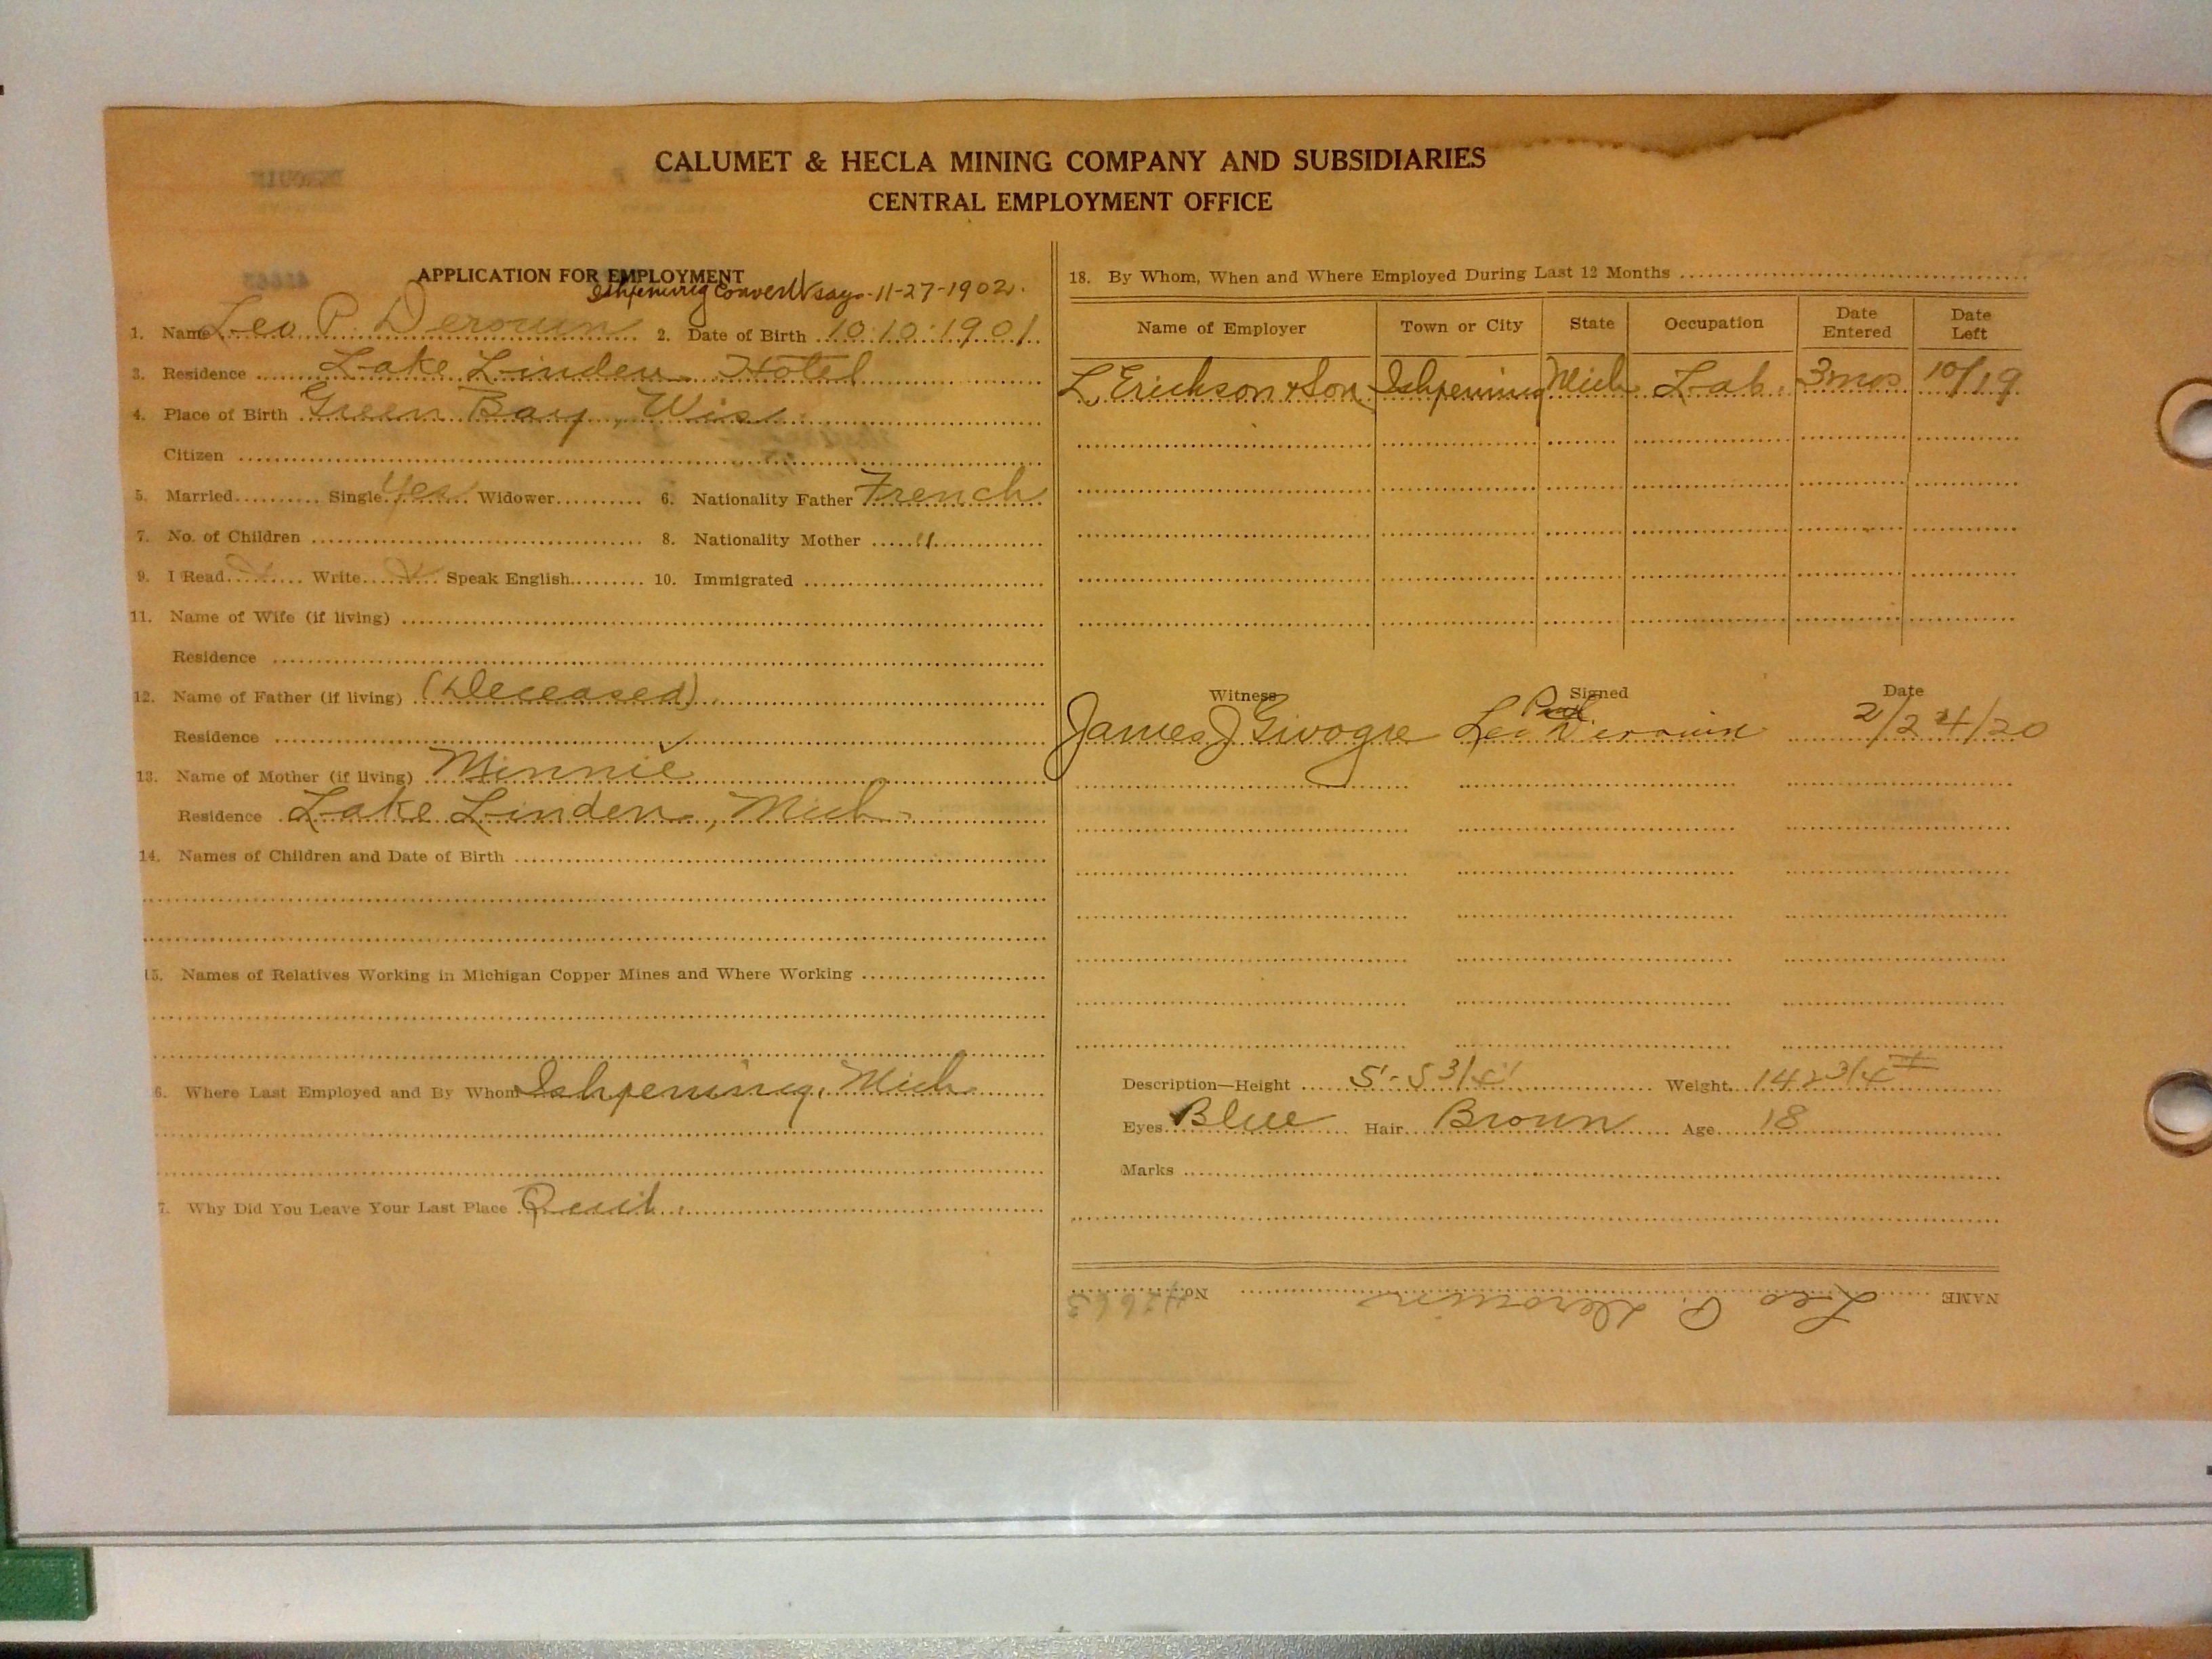 CALUMET & HECLA MINING COMPANY AND SUBSIDIARIES
CENTRAL EMPLOYMENT OFFICE
APPLICATION FOR EMPLOYMENT
Ishpeming Convent says 11-27-1902.
1. Name Leo P. Derouin 2. Date of Birth 10.10.1901
3. Residence Lake Linden Hotel
4. Place of Birth Green Bay, Wis.
Citizen
5. Married Single Yes Widower 6. Nationality Father French
7. No. of Children 8. Nationality Mother "
9. I Read Write Speak English 10. Immigrated
11. Name of Wife (if living)
Residence
12. Name of Father (if living) (Deceased)
Residence
13. Name of Mother (if living) Minnie
Residence Lake Linden, Mich
14. Names of Children and Date of Birth
15. Names of Relatives Working in Michigan Copper Mines and Where Working
6. Where Last Employed and By Whom Ishpeming, Mich
7. Why Did You Leave Your Last Place Quit
18. By Whom, When and Where Employed During Last 12 Months
Name of Employer Town or City State Occupation Date Entered Date Left
L. Erickson & Son Ishpeming Mich Lab. 3 mos 10/19
Witness Signed Date
James J Givogre Leo Paul Derouin 2/24/20
Description—Height 5'-5 3/4" Weight 142 3/4 #
Eyes Blue Hair Brown Age 18
Marks
NAME Leo P. Derouin No.